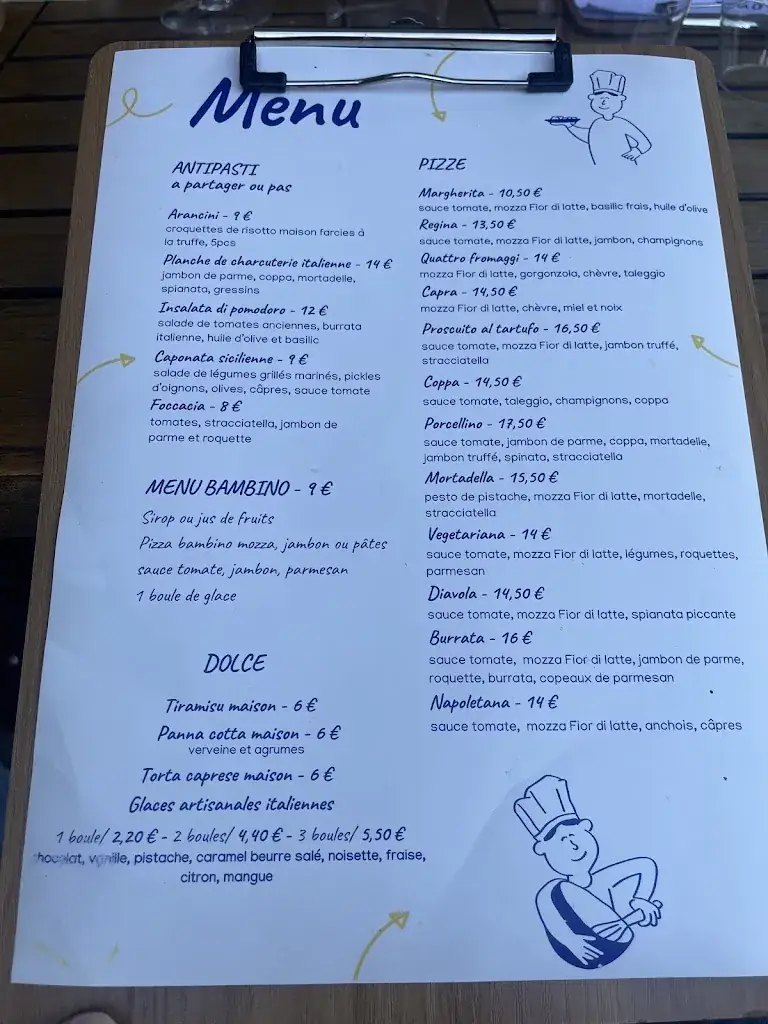 Menu
ANTIPASTI
a partager ou pas
Arancini - 9 €
croquettes de risotto maison farcies à
la truffe, 5pcs
Planche de charcuterie italienne - 14 €
jambon de parme, coppa, mortadelle,
spianata, gressins
Insalata di pomodoro - 12 €
salade de tomates anciennes, burrata
italienne, huile d'olive et basilic
Caponata sicilienne - 9 €
salade de légumes grillés marinés, pickles
d'oignons, olives, câpres, sauce tomate
Foccacia - 8 €
tomates, stracciatella, jambon de
parme et roquette
MENU BAMBINO - 9 €
Sirop ou jus de fruits
Pizza bambino mozza, jambon ou pâtes
sauce tomate, jambon, parmesan
1 boule de glace
DOLCE
Tiramisu maison - 6 €
Panna cotta maison - 6 €
verveine et agrumes
Torta caprese maison - 6 €
Glaces artisanales italiennes
1 boule/ 2,20 € - 2 boules/ 4,40 € - 3 boules/ 5,50 €
chocolat, vanille, pistache, caramel beurre salé, noisette, fraise,
citron, mangue
PIZZE
Margherita - 10,50 €
sauce tomate, mozza Fior di latte, basilic frais, huile d'olive
Regina - 13,50 €
sauce tomate, mozza Fior di latte, jambon, champignons
Quattro fromaggi - 14 €
mozza Fior di latte, gorgonzola, chèvre, taleggio
Capra - 14,50 €
mozza Fior di latte, chèvre, miel et noix
Proscuito al tartufo - 16,50 €
sauce tomate, mozza Fior di latte, jambon truffé,
stracciatella
Coppa - 14,50 €
sauce tomate, taleggio, champignons, coppa
Porcellino - 17,50 €
sauce tomate, jambon de parme, coppa, mortadelle,
jambon truffé, spinata, stracciatella
Mortadella - 15,50 €
pesto de pistache, mozza Fior di latte, mortadelle,
stracciatella
Vegetariana - 14 €
sauce tomate, mozza Fior di latte, légumes, roquettes,
parmesan
Diavola - 14,50 €
sauce tomate, mozza Fior di latte, spianata piccante
Burrata - 16 €
sauce tomate, mozza Fior di latte, jambon de parme,
roquette, burrata, copeaux de parmesan
Napoletana - 14 €
sauce tomate, mozza Fior di latte, anchois, câpres